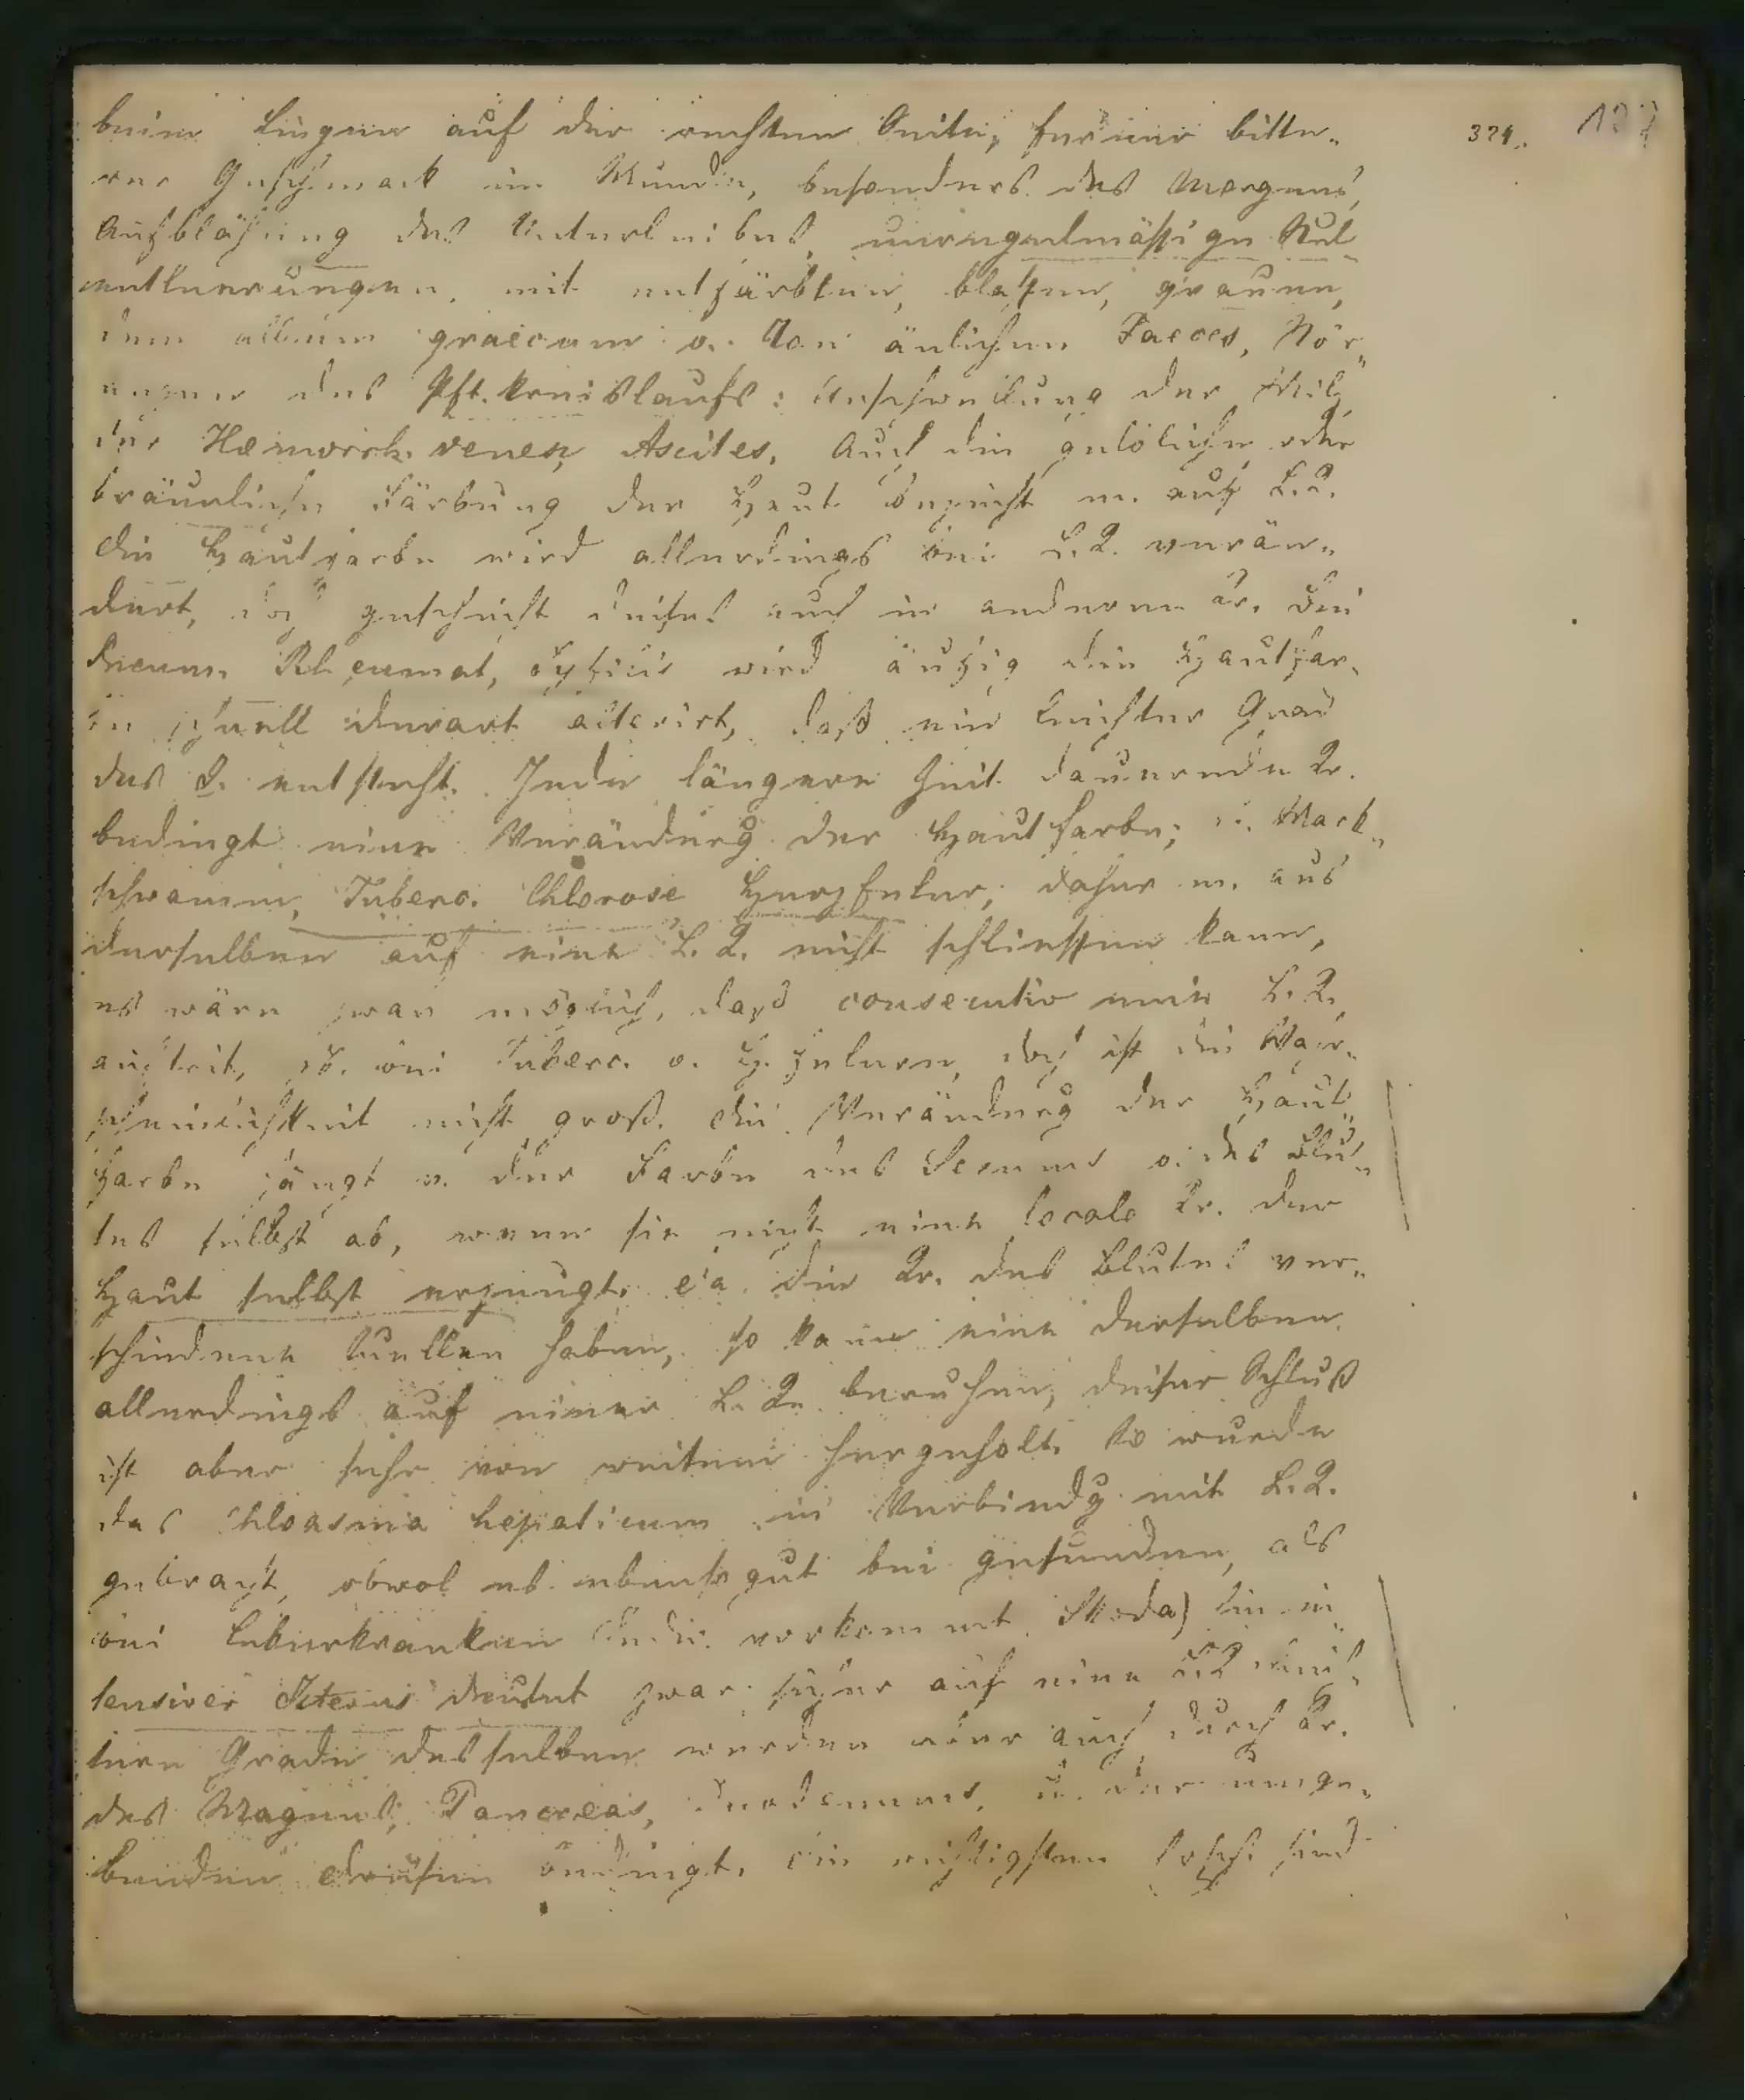 beim Liegen auf der rechten Seite, ferner bitte-
rer Geschmack im Munde, besonders des Morgens,
Aufblähung des Unterleibes, unregelmässige Stul
entleerungen, mit entfärbten, blassen, grauen,
dem album graecum o. Ton änlichen Faeces, Stör„
ungen des Pft. kreislaufs: Anschwellung der Milz
der Hæmorrh. venen, Ascites. Auch die gelbliche oder
bräunliche Färbung der Haut bezieht m. auf L. K.
die Hautfarbe wird allerdings bei L. K. verän„
dert, doch geschieht dieses auch in anderen Kr. Bei
Pneum. Rheumat, Typhus wird häufig die Hautfar„
be schnell derart alterirt, daß ein leichter Grad
des I. entsteht. Jede längere Zeit dauernde Kr.
bedingt eine Veränderg der Hautfarbe; z. Mark„
schwamm, Tuberc. Chlorose Herzfeler, daher m. aus
derselben auf eine L. K. nicht schliessen kann,
es wäre zwar möglich, daß consecutiv eine L. K.
auftrit, zB. bei Tuberc. o. H. felern, doch ist die War„
scheinlichkeit nicht groß. Die Veränderg der Haut
farbe hängt v. der Farbe des Serums o. des Blu„
tes selbst ab, wenn sie nicht eine locale Kr. der
Haut selbst erzeugt. Da die Kr. des Blutes ver„
schiedene Quellen haben, so kann eine derselben
allerdings auf einer L. Kr. beruhen, dieser Schluß
ist aber sehr von weitem hergeholt. So wurde
das Chloasma hepaticum in Verbindg mit L. K.
gebracht, obwol es ebenso gut bei gesunden, als
bei Leberkranken vorkommt. Skoda) Ein in
tensiver Icterus deutet zwar sicher auf eine L. K
tere Grade desselben werden aber auch durch Kr.
des Magens, Pancreas, Duodenums, u. der umge„
benden Drüsen bedingt. Die wichtigsten sind
324.